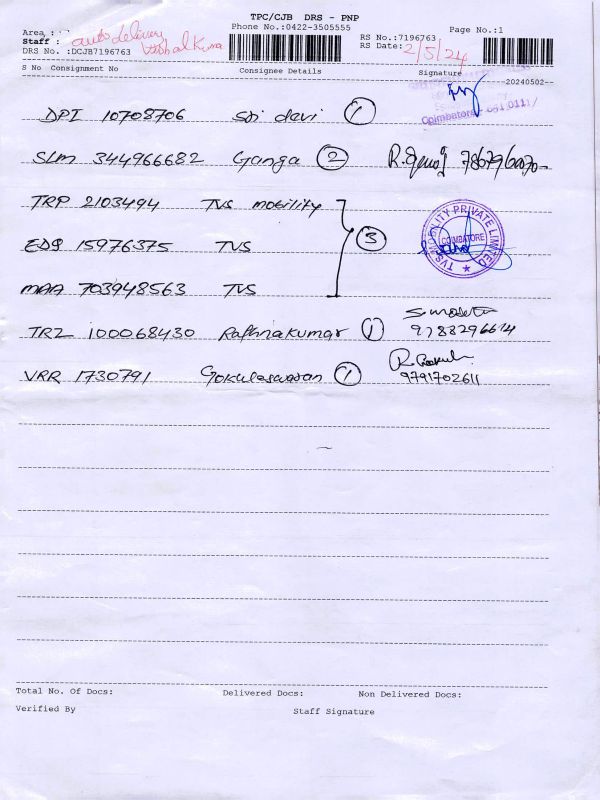 TPC/CJB DRS - PNP
Phone No.:0422-3505555
Page No.:1
Area :
Staff : auto delivery Vishal Kumar
RS No.:7196763
DRS No. :DCJB7196763
RS Date: 2/5/24
S No Consignment No Consignee Details Signature
20240502
DPI 10708706 Sri devi 1
Coimbatore
SLM 344966682 Ganga 2
TRP 2103494 TVS mobility
EDS 15976375 TVS 3
TVS MOBILITY PRIVATE LIMITED
COIMBATORE
MAA 703948563 TVS
TRZ 100068430 Rathnakumar 1 9788296614
VRR 1730791 Gokuleswaran 1
9791702611
Total No. Of Docs: Delivered Docs: Non Delivered Docs:
Verified By Staff Signature